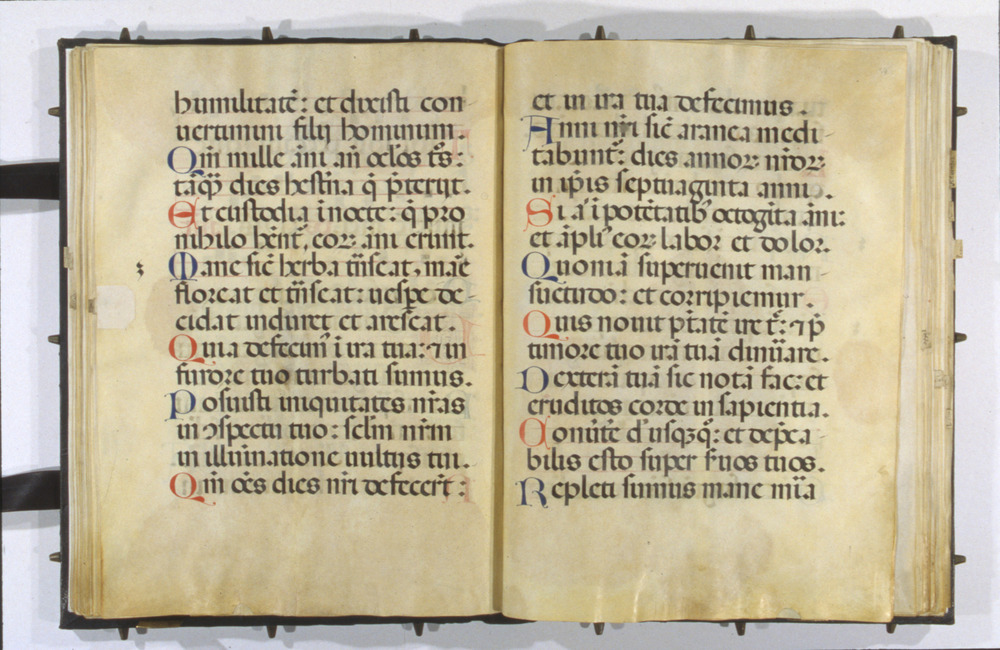 humilitatē: et dixisti con
uertimini filij hominum.
Qm̄ mille āni añ oc̄los t̄s:
tāqȝ dies hest̄na q̄ p̄terijt.
Et custodia ī nocte: q̄ pro
nihilo hēnt̄, eoꝝ āni erunt.
Mane sic̄ herba tn̄seat, māe
floreat et tn̄seat: uesp̄e de
cidat induret et arescat.
Quia defecim̄ ī ira tua: ⁊ in
furore tuo turbati sumus.
Posuisti iniquitates nr̄as
in ꝯspectu tuo: sclm̄ nr̄m
in illuminatione uultus tui.
Qm̄ oēs dies nr̄i defecert̄:
et in ira tua defecimus.
Anni nr̄i sic̄ aranea medi
tabunt̄: dies annoꝝ nr̄oꝝ
in ip̄is septuaginta anni.
Si aū ī potētatibȝ octogīta āni:
et āpli' eoꝝ labor et dolor.
Quoniā superuenit man
suetudo: et corripiemur.
Quis nouit ptāte ire t̄: ⁊ p̄
timore tuo irā tuā dinūare.
Dexterā tuā sic notā fac: et
eruditos corde in sapientia.
Conūte d' usqȝ q̄: et dep̄ca
bilis esto super ẜuos tuos.
Repleti sumus mane mīa